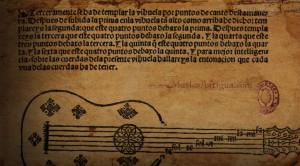 Terceramente se ha de templar la vihuela por puntos de canto desta mane
ra. Despues de subida la prima en la vihuela tã alto como arriba dicho: tem
plarey s la segunda: que este quatro puntos debaxo la prima. Despues templa
reys la tercera q̃ este quatro puntos debaxo la segunda. Y la quarta que este
tres puntos debaxo la tercera. Y la quinta q̃ este quatro puntos debaxo la quar
ta. Y la sexta que este quatro puntos debaxo la quinta. Y para mejor inteligen
cia sobre las cuerdas dela presente vihuela hallareys la entonacion que cada
vna delas cuerdas ha de tener.
MusicaAntigua.com